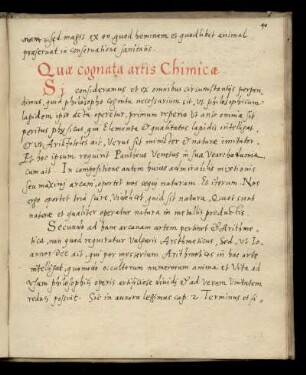 nam, sed magis ex eo, quod hominem et quodlibet animal
præseruat in conseruatione sanitatis.
Quæ cognata artis Chimicæ
Si consideramus et ex omnibus circumstantijs perpen
dimus, quid philosopho cognitu necessarium sit, ut philosophicum
lapidem ipse acta operetur, primum reperio ut ante omnia sit
peritus physicus, qui Elementa et qualitates lapidis intelligat,
et ut Aristoteles ait, Verus sit minister et naturæ imitator.
Et hoc ipsum requirit Pantheus Venetus in sua Voarchadumia
cum ait. In compositione autem huius admirabilis mixtionis
seu maximj arcanj, oportet nos sequj naturam. Et iterum. Nos
ergo oportet tria scire, Videlicet, quid sit natura, Quot sunt
naturæ et qualiter operatur natura in metallis producendis.
Secundo ad hanc arcanam artem pertinet et Arithme
tica, non quod requiratur vulgaris Arithmeticus, sed, ut Io-
annes Dee ait, qui per mysterium Arithmeticæ in hac arte
intelligat, quomodo occultorum numerorum anima et Vita ad
ipsam philosophici operis artificiose diuidi et ad veram Vnitatem
redigi possint. Sic in aurora legimus cap. 2 Terminus et fi-